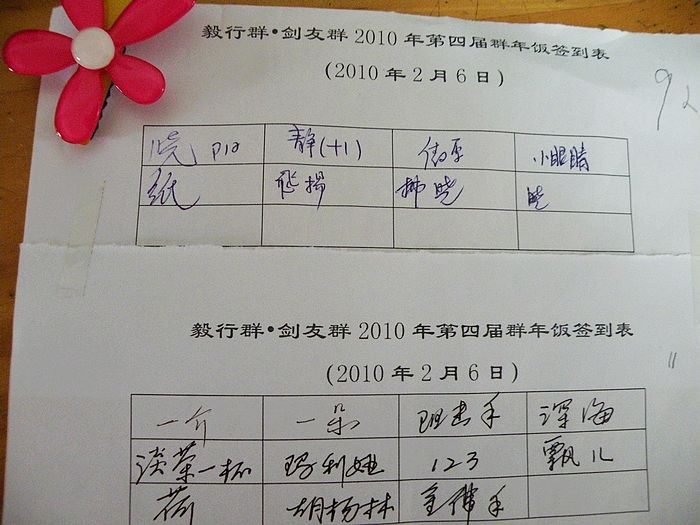 毅行群•剑友群 2010 年第四届群年饭签到表
(2010 年 2 月 6 日)
92
静(+1) 小眼睛
纸 拂晓
毅行群•剑友群 2010 年第四届群年饭签到表
(2010 年 2 月 6 日)
一介 一朵 阻击手 深海
淡茶一杯 玛利娅 123 飘儿
荷 胡杨林 金佛手